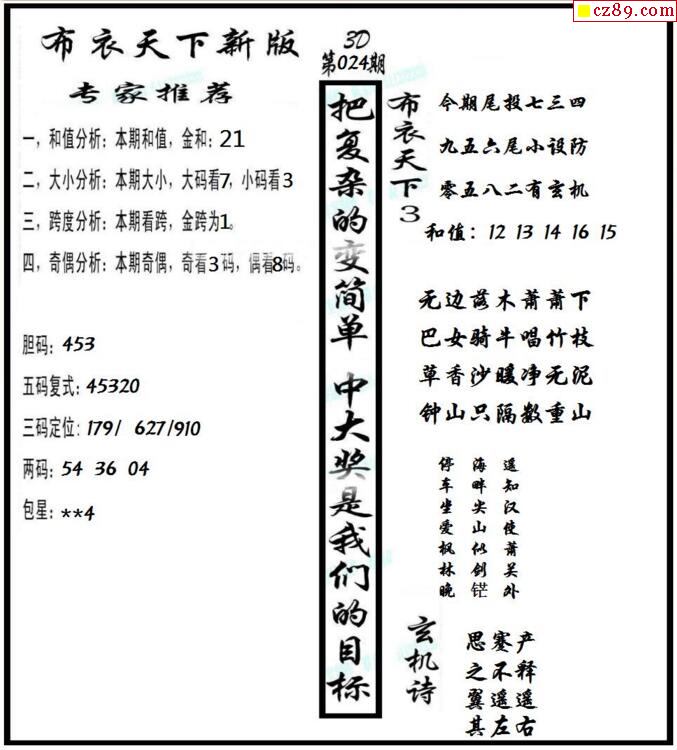 cz89.com
布衣天下新版
专家推荐
一，和值分析：本期和值，金和：21
二，大小分析：本期大小，大码看7，小码看3
三，跨度分析：本期看跨，金跨为1。
四，奇偶分析：本期奇偶，奇看3码，偶看8码。
胆码：453
五码复式：45320
三码定位：179/ 627/910
两码：54 36 04
包星：**4
3D
第024期
把复杂的变简单 中大奖是我们的目标
布衣天下3
今期尾投七三四
九五六尾小设防
零五八二有玄机
和值：12 13 14 16 15
无边落木萧萧下
巴女骑牛唱竹枝
草香沙暖净无泥
钟山只隔数重山
停车坐爱枫林晚
海畔尖山似剑铓
遥知汉使萧关外
玄机诗
思蹇产
之不释
翼遥遥
其左右